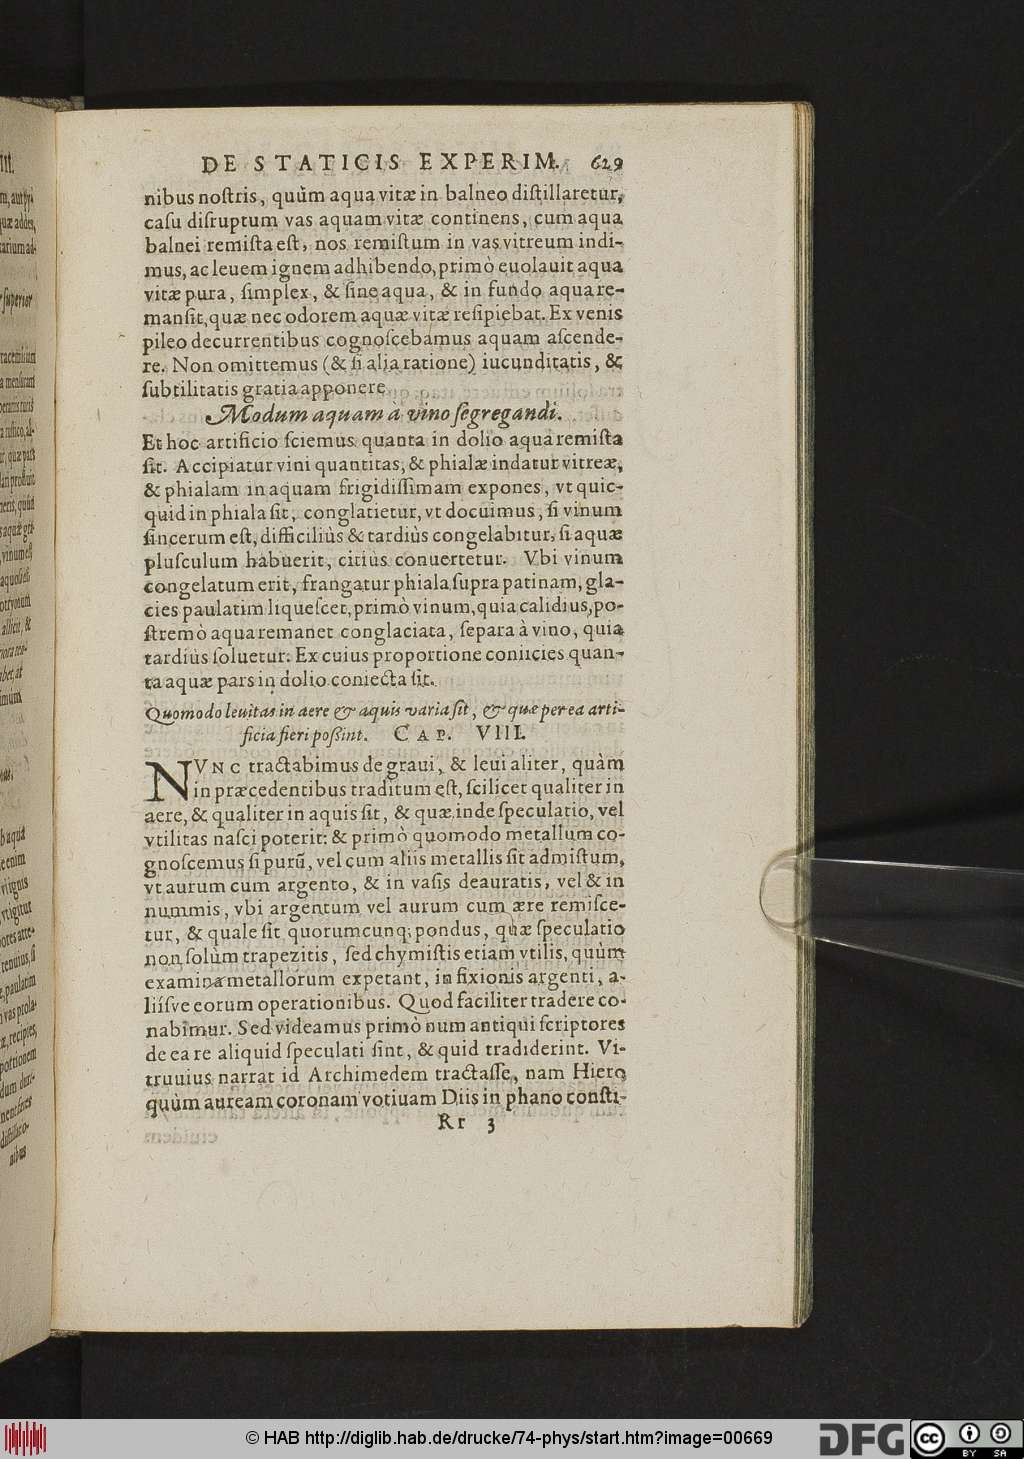 DE STATICIS EXPERIM. 629
nibus noſtris, quùm aqua vitæ in balneo diſtillaretur,
caſu diſruptum vas aquam vitæ continens, cum aqua
balnei remiſta eſt, nos remiſtum in vas vitreum indi-
mus, ac leuem ignem adhibendo, primò euolauit aqua
vitæ pura, ſimplex, & ſine aqua, & in fundo aqua re-
manſit, quæ nec odorem aquæ vitæ reſipiebat. Ex venis
pileo decurrentibus cognoſcebamus aquam aſcende-
re. Non omittemus (& ſi alia ratione) iucunditatis, &
ſubtilitatis gratia apponere
Modum aquam à vino ſegregandi.
Et hoc artificio ſciemus quanta in dolio aqua remiſta
ſit. Accipiatur vini quantitas, & phialæ indatur vitreæ,
& phialam in aquam frigidiſſimam expones, vt quic-
quid in phiala ſit, conglatietur, vt docuimus, ſi vinum
ſincerum eſt, difficiliùs & tardiùs congelabitur, ſi aquæ
pluſculum habuerit, citiùs conuertetur. Vbi vinum
congelatum erit, frangatur phiala ſupra patinam, gla-
cies paulatim liqueſcet, primò vinum, quia calidius, po-
ſtremò aqua remanet conglaciata, ſepara à vino, quia
tardiùs ſoluetur. Ex cuius proportione coniicies quan-
ta aquæ pars in dolio coniecta ſit.
Quomodo leuitas in aere & aquis varia ſit, & quæ per ea arti-
ficia fieri poßint. CAP. VIII.
NVNC tractabimus de graui, & leui aliter, quàm
in præcedentibus traditum eſt, ſcilicet qualiter in
aere, & qualiter in aquis ſit, & quæ inde ſpeculatio, vel
vtilitas naſci poterit: & primò quomodo metallum co-
gnoſcemus ſi purũ, vel cum aliis metallis ſit admiſtum,
vt aurum cum argento, & in vaſis deauratis, vel & in
nummis, vbi argentum vel aurum cum ære remiſce-
tur, & quale ſit quorumcunq; pondus, quæ ſpeculatio
non ſolùm trapezitis, ſed chymiſtis etiam vtilis, quùm
examina metallorum expetant, in fixionis argenti, a-
liíſve eorum operationibus. Quod faciliter tradere co-
nabimur. Sed videamus primò num antiqui ſcriptores
de ea re aliquid ſpeculati ſint, & quid tradiderint. Vi-
truuius narrat id Archimedem tractaſſe, nam Hiero
quùm auream coronam votiuam Diis in phano conſti-
Rr 3
© HAB http://diglib.hab.de/drucke/74-phys/start.htm?image=00669
DFG
cc
BY SA